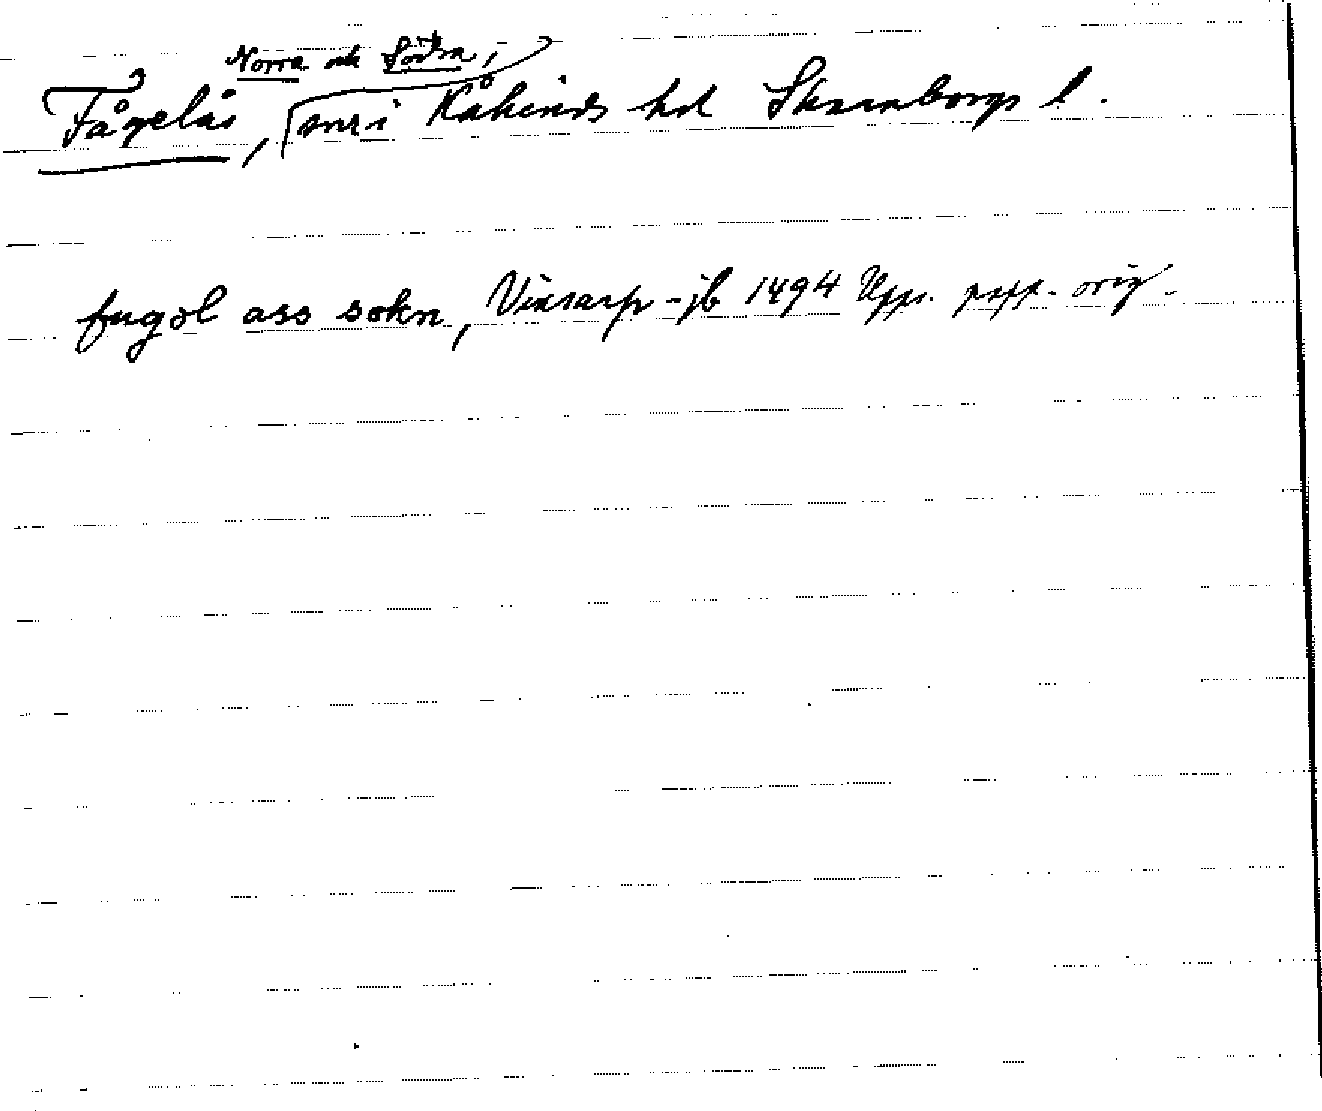 Norra och Södra,
Fågelås, snr i Kåkinds hd Skaraborgs l.
fugol ass sokn, Vinsarp-jb 1494 Upps. papp. orig.